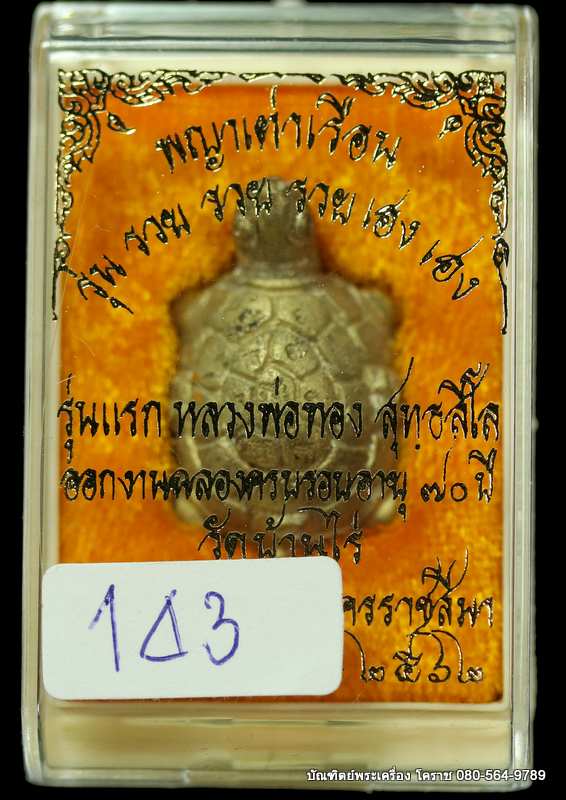 พญาเต่าเรือน
รุ่น รวย รวย รวย เฮง เฮง
รุ่นแรก หลวงพ่อทอง สุทธสีโล
ออกงานฉลองครบรอบอายุ ๗๐ ปี
วัดบ้านไร่
ครราชสีมา
๒๕๖๒
1Δ3
บัณฑิตย์พระเครื่อง โคราช 080-564-9789